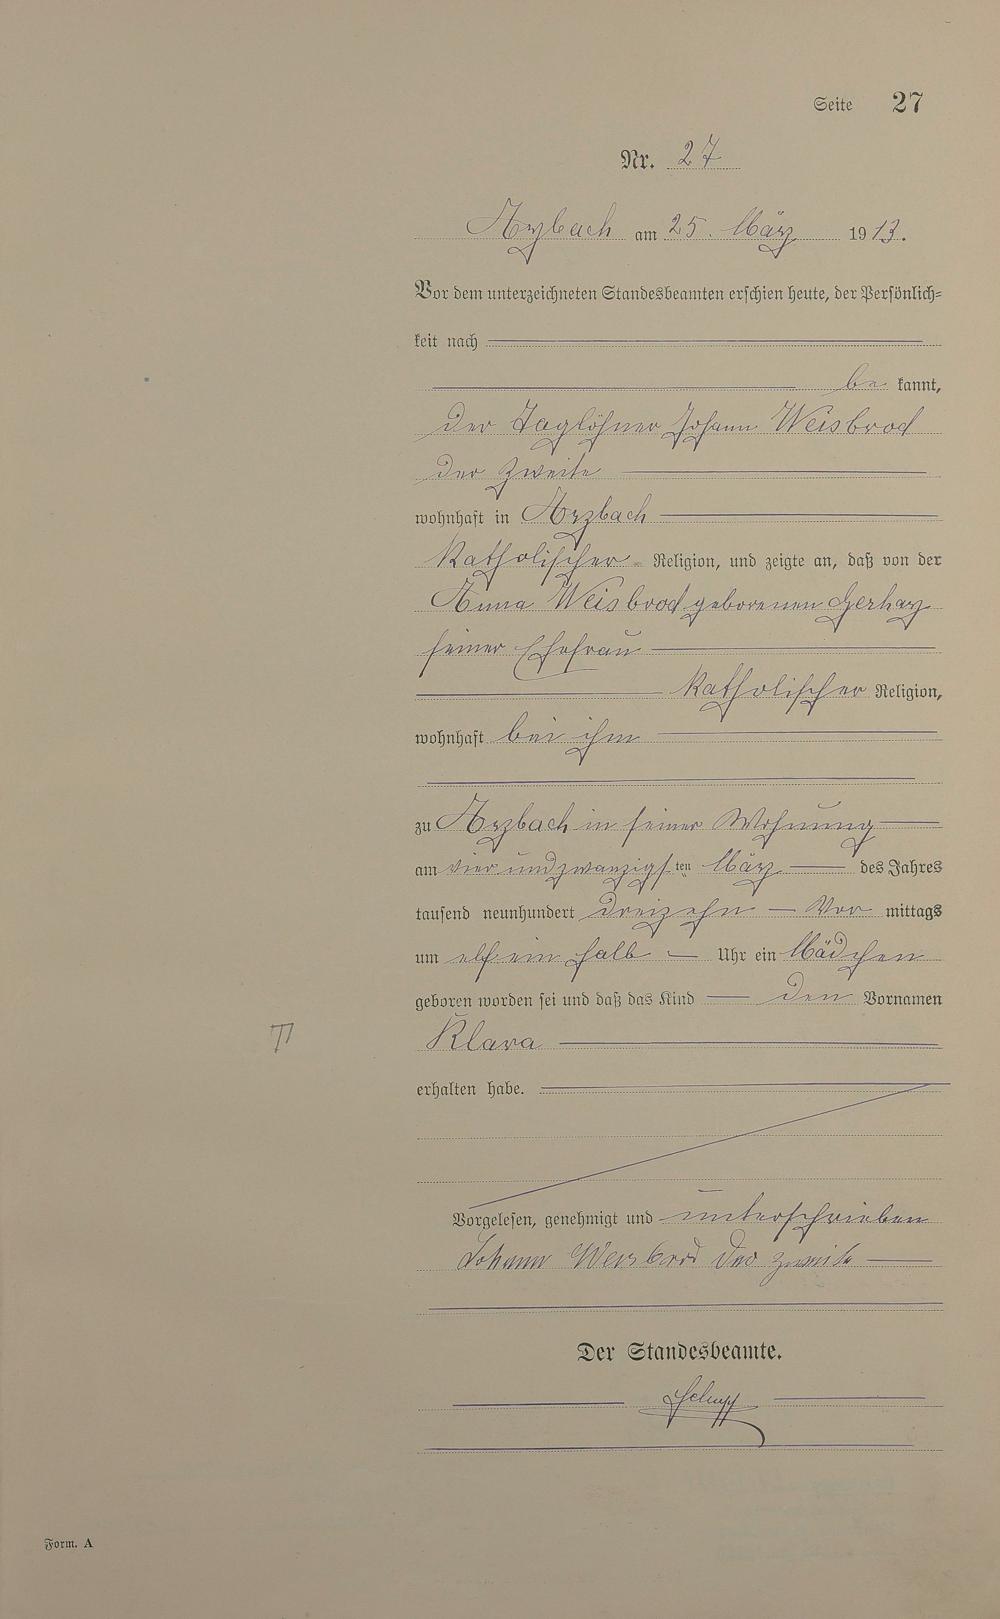 Seite 27
Nr. 27
Arzbach am 25. März 1913.
Vor dem unterzeichneten Standesbeamten erschien heute, der Persönlich=
keit nach
be kannt,
der Taglöhner Johann Weisbrod
der Zweite
wohnhaft in Arzbach
katholischer Religion, und zeigte an, daß von der
Anna Weisbrod geborenen Gerharz
seiner Ehefrau
katholischer Religion,
wohnhaft bei ihm
zu Arzbach in seiner Wohnung
am vier und zwanzigsten März des Jahres
tausend neunhundert dreizehn Vor mittags
um elf ein halb Uhr ein Mädchen
geboren worden sei und daß das Kind den Vornamen
Klara
erhalten habe.
Vorgelesen, genehmigt und unterschrieben
Johann Weisbrod der zweite
Der Standesbeamte.
Form. A